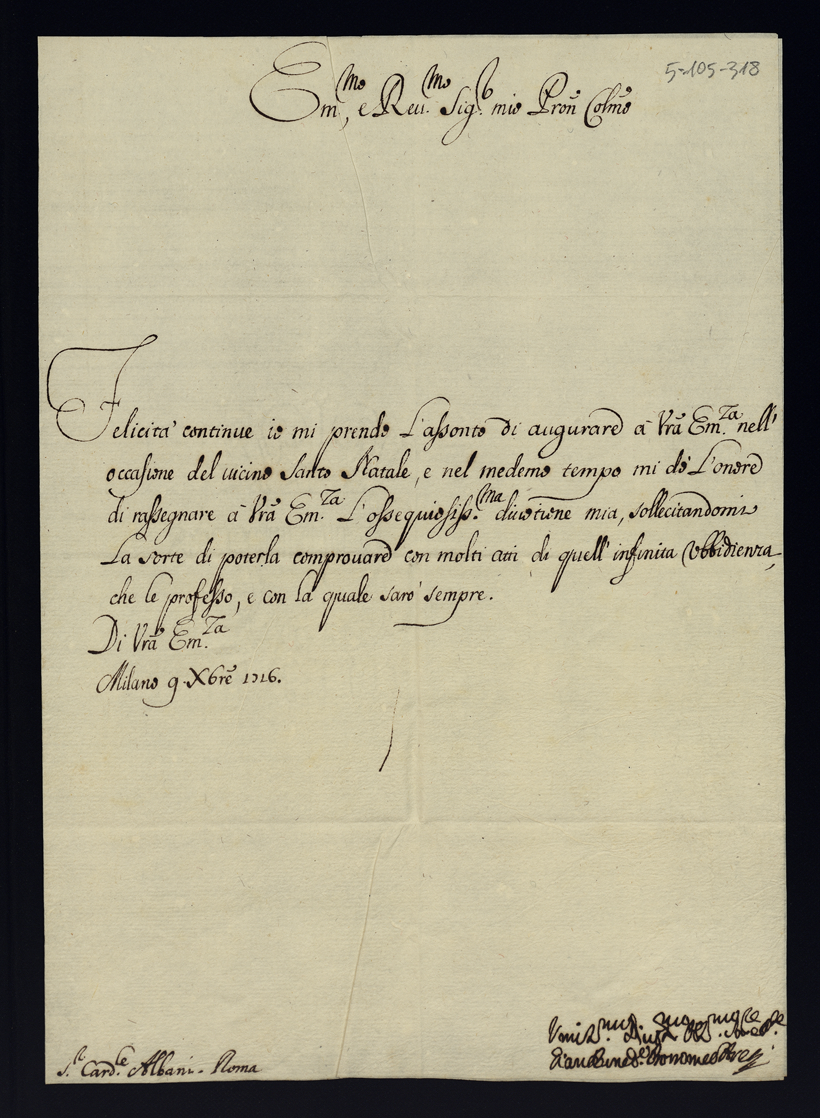 5-105-318
Em.mo, e Reu.mo Sig.r mio Pron Colmo
Felicita' continue io mi prendo L'assonto di augurare à Vrã Em.Za nell'
occasione del uicino Santo Natale, e nel medemo tempo mi dò L'onore
di rassegnare à Vrã Em.Za L'ossequiosiss.ma diuotione mia, sollecitandomi
La sorte di poterla comprouare con molti atti di quell'infinita Vbbidienza,
che le professo, e con la quale sarò sempre.
Di Vrã Em.Za
Milano 9 Xbrẽ 1716.
S.r Card.le Albani - Roma